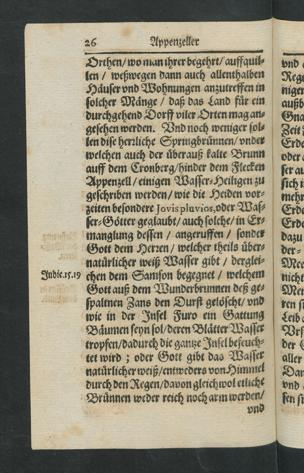 26 Appenzeller
Orthen / wo man ihrer begehrt / auffquil-
len / weßwegen dann auch allenthalben
Häuser vnd Wohnungen anzutreffen in
solcher Mänge / daß das Land für ein
durchgehend Dorff viler Orten mag an-
gesehen werden. Vnd noch weniger sol-
len dise herzliche Sprungbrünnen / vnder
welchen auch der überauß kalte Brunn
auff dem Cronberg / hinder dem Flecken
Appenzell / einigen Wasser-Heiligen zu
geschriben werden / wie die Heiden vor-
zeiten besondere Jovis pluvios, oder Was-
ser-Götter geglaubt / auch solche / in Er-
manglung dessen / angeruffen / sonder
Gott dem Herzen / welcher theils über-
natürlicher weiß Wasser gibt / derglei-
chen dem Samson begegnet / welchem
Judic. 15. 19
Gott auß dem Wunderbrunnen deß ge-
spaltnen Zans den Durst gelöscht / vnd
wie in der Insel Furo ein Gattung
Bäumen seyn sol / deren Blätter Wasser
tropfen / dadurch die gantze Insel befeuch-
tet wird ; oder Gott gibt das Wasser
natürlicher weiß / entweders von Himmel
durch den Regen / davon gleichwol etliche
Brünnen weder reich noch arm werden /
vnd